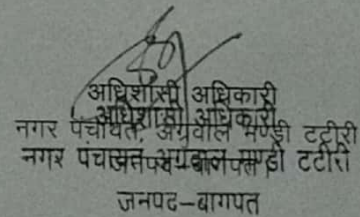 अधिशासी अधिकारी
अधिशासी अधिकारी
नगर पंचायत, अग्रवाल मण्डी टटीरी
नगर पंचायत अग्रवाल मण्डी टटीरी
जनपद-बागपत
जनपद-बागपत